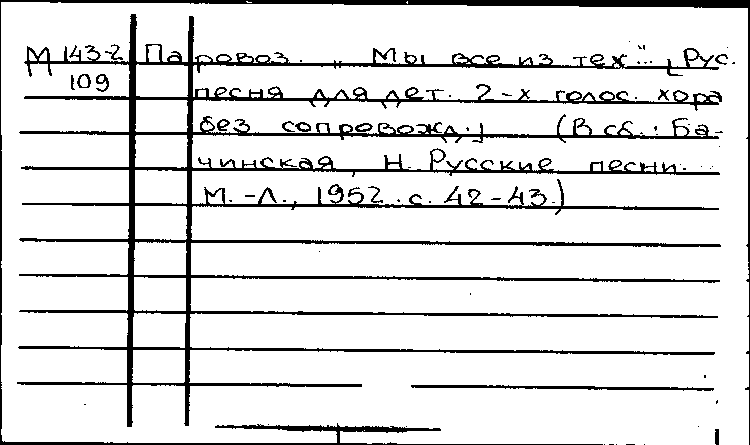 М 143-2 Паровоз. „Мы все из тех“.. [Рус.
109 песня для дет. 2-х голос. хора
без сопровожд.] (В сб.: Ба-
чинская, Н. Русские песни.
М.-Л., 1952. с. 42-43.)